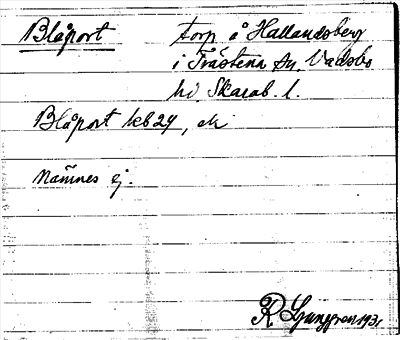 Blåport torp å Hallandsberg
i Trästena sn, Vadsbo
hd, Skarab. l.
Blåport kb 24, ek
Nämnes ej.
R Ljunggren 1931